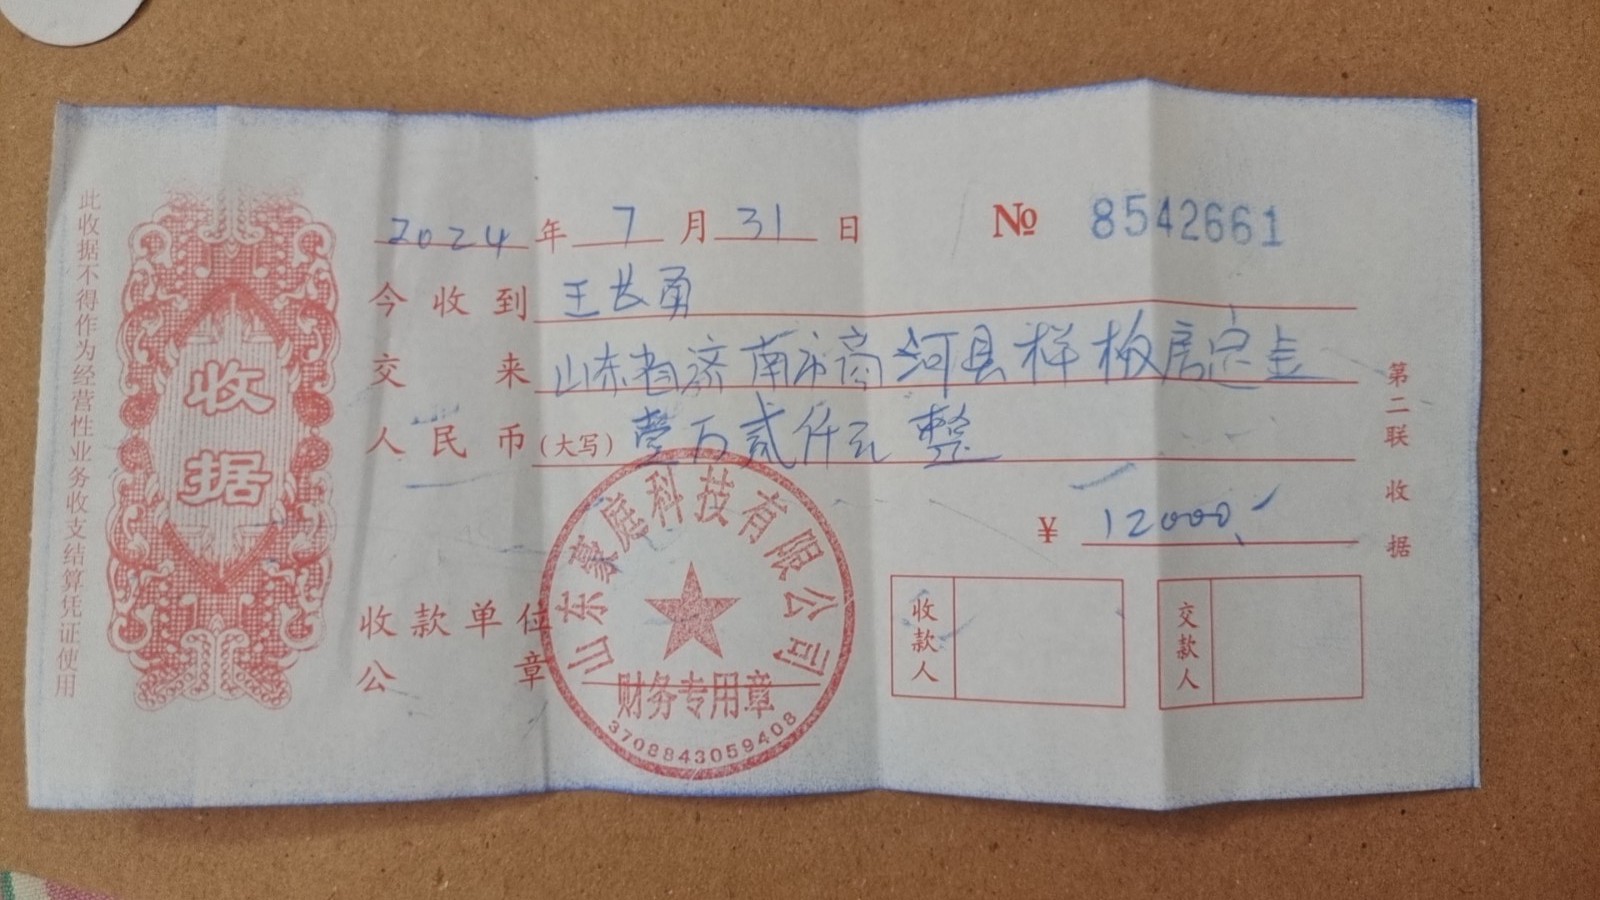 此收据不得作为经营性业务收支结算凭证使用
收据
2024年7月31日
№ 8542661
今收到 王长勇
交来 山东省济南市商河县样板房定金
人民币(大写) 壹万贰仟元整
¥ 12000
收款单位
公章
山东豪庭科技有限公司
财务专用章
3708843059408
收款人
交款人
第二联 收据